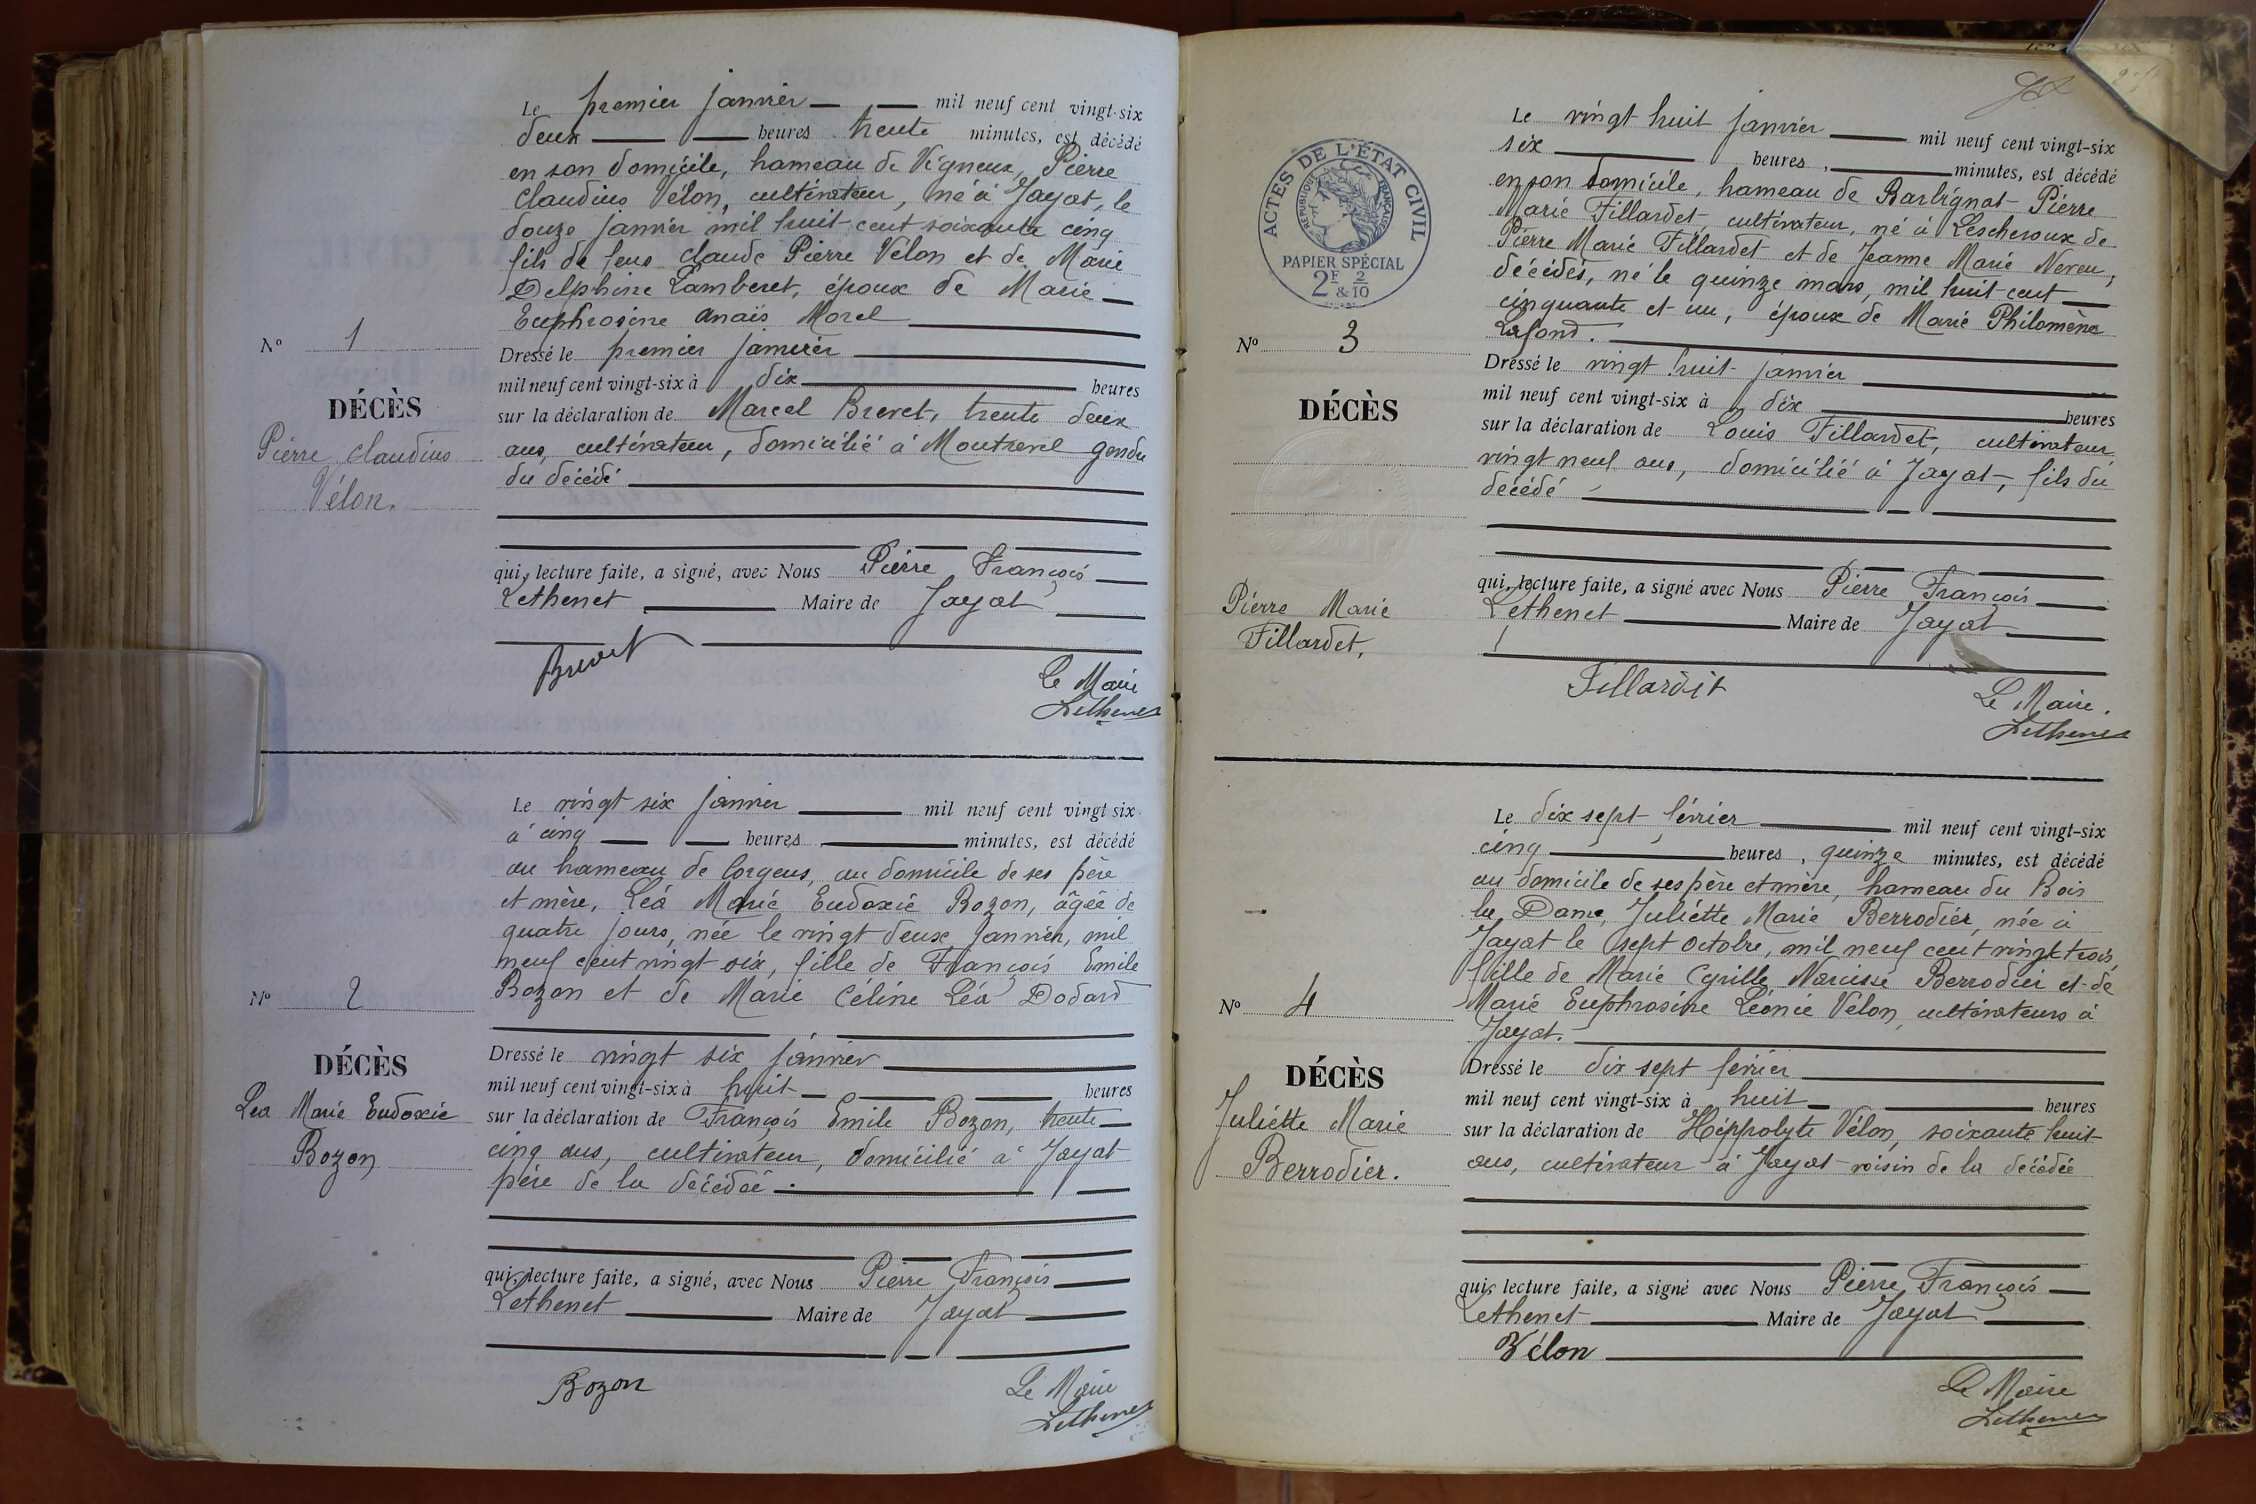 Le premier janvier mil neuf cent vingt-six
deux heures trente minutes, est décédé
en son domicile, hameau de Vigneux, Pierre
Claudius Vélon, cultivateur, né à Jayat, le
douze janvier mil huit cent soixante cinq
fils de feus Claude Pierre Vélon et de Marie
Delphine Lamberet, époux de Marie
Euphrosine Anaïs Morel
Nº 1
Dressé le premier janvier
mil neuf cent vingt-six à dix heures
DÉCÈS
sur la déclaration de Marcel Brevet, trente deux
Pierre Claudius
ans, cultivateur, domicilié à Montrevel gendre
du décédé
Vélon.
qui, lecture faite, a signé, avec Nous Pierre François
Lethenet Maire de Jayat
Brevet
Le Maire
Lethenet
Le vingt six janvier mil neuf cent vingt six
à cinq heures minutes, est décédé
au hameau de Corgeus, au domicile de ses père
et mère, Léa Marie Eudoxie Bozon, âgée de
quatre jours, née le vingt deux janvier, mil
neuf cent vingt six, fille de François Emile
Bozon et de Marie Céline Léa Dodard
Nº 2
Dressé le vingt six janvier
DÉCÈS
mil neuf cent vingt-six à huit heures
Léa Marie Eudoxie
sur la déclaration de François Emile Bozon, trente
Bozon
cinq ans, cultivateur, domicilié à Jayat
père de la décédée.
qui, lecture faite, a signé, avec Nous Pierre François
Lethenet Maire de Jayat
Bozon
Le Maire
Lethenet
ACTES DE L'ÉTAT CIVIL
RÉPUBLIQUE FRANÇAISE
PAPIER SPÉCIAL
2F & 2/10
Le vingt huit janvier mil neuf cent vingt-six
six heures, minutes, est décédé
en son domicile, hameau de Barbignat Pierre
Marie Fillardet, cultivateur, né à Lescheroux de
Pierre Marie Fillardet et de Jeanne Marie Neveu,
décédés, né le quinze mars, mil huit cent
cinquante et un, époux de Marie Philomène
Lafond.
Nº 3
Dressé le vingt huit janvier
mil neuf cent vingt-six à dix heures
DÉCÈS
sur la déclaration de Louis Fillardet, cultivateur
vingt neuf ans, domicilié à Jayat, fils du
décédé
qui, lecture faite, a signé avec Nous Pierre François
Pierre Marie
Lethenet Maire de Jayat
Fillardet,
Fillardet
Le Maire.
Lethenet
Le dix sept février mil neuf cent vingt-six
cinq heures, quinze minutes, est décédé
au domicile de ses père et mère, hameau du Bois
la Dame, Juliette Marie Berrodier, née à
Jayat le sept octobre, mil neuf cent vingt trois,
fille de Marie Cyrille Narcisse Berrodier et de
Marie Euphrosine Léonie Vélon, cultivateurs à
Nº 4
Jayat.
Dressé le dix sept février
DÉCÈS
mil neuf cent vingt-six à huit heures
Juliette Marie
sur la déclaration de Hippolyte Vélon, soixante huit
Berrodier.
ans, cultivateur à Jayat voisin de la décédée
qui, lecture faite, a signé avec Nous Pierre François
Lethenet Maire de Jayat
Vélon
Le Maire
Lethenet